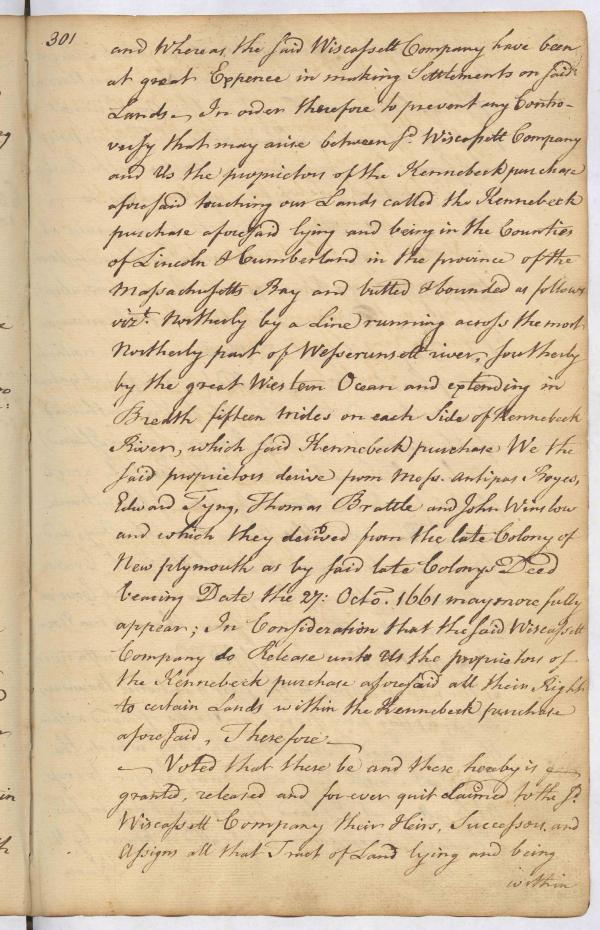 301
and Whereas the said Wiscassett Company have been
at great Expence in making Settlements on said
Lands, In order therefore to prevent any Contro-
versy that may arise between sd. Wiscassett Company
and Us the proprietors of the Kennebeck purchase
aforesaid touching our Lands called the Kennebeck
purchase aforesaid lying and being in the Counties
of Lincoln & Cumberland in the province of the
Massachusetts Bay and butted & bounded as follows
vizt. Northerly by a Line running across the most
Northerly part of Wesserunsett river, Southerly
by the great Western Ocean and extending in
Breadth fifteen miles on each Side of Kennebeck
River, which said Kennebeck purchase We the
said proprietors derive from Mess. Antipas Boyes,
Edward Tyng, Thomas Brattle and John Winslow
and which they derived from the late Colony of
New plymouth as by said late Colonys Deed
bearing Date the 27: Octo. 1661 may more fully
appear; In Consideration that the said Wiscassett
Company do Release unto Us the proprietors of
the Kennebeck purchase aforesaid all their Right
to certain Lands within the Kennebeck purchase
aforesaid, Therefore
Voted that there be and there hereby is
granted, released and for ever quit claimed to the sd.
Wiscassett Company their Heirs, Successors and
Assigns all that Tract of Land lying and being
within